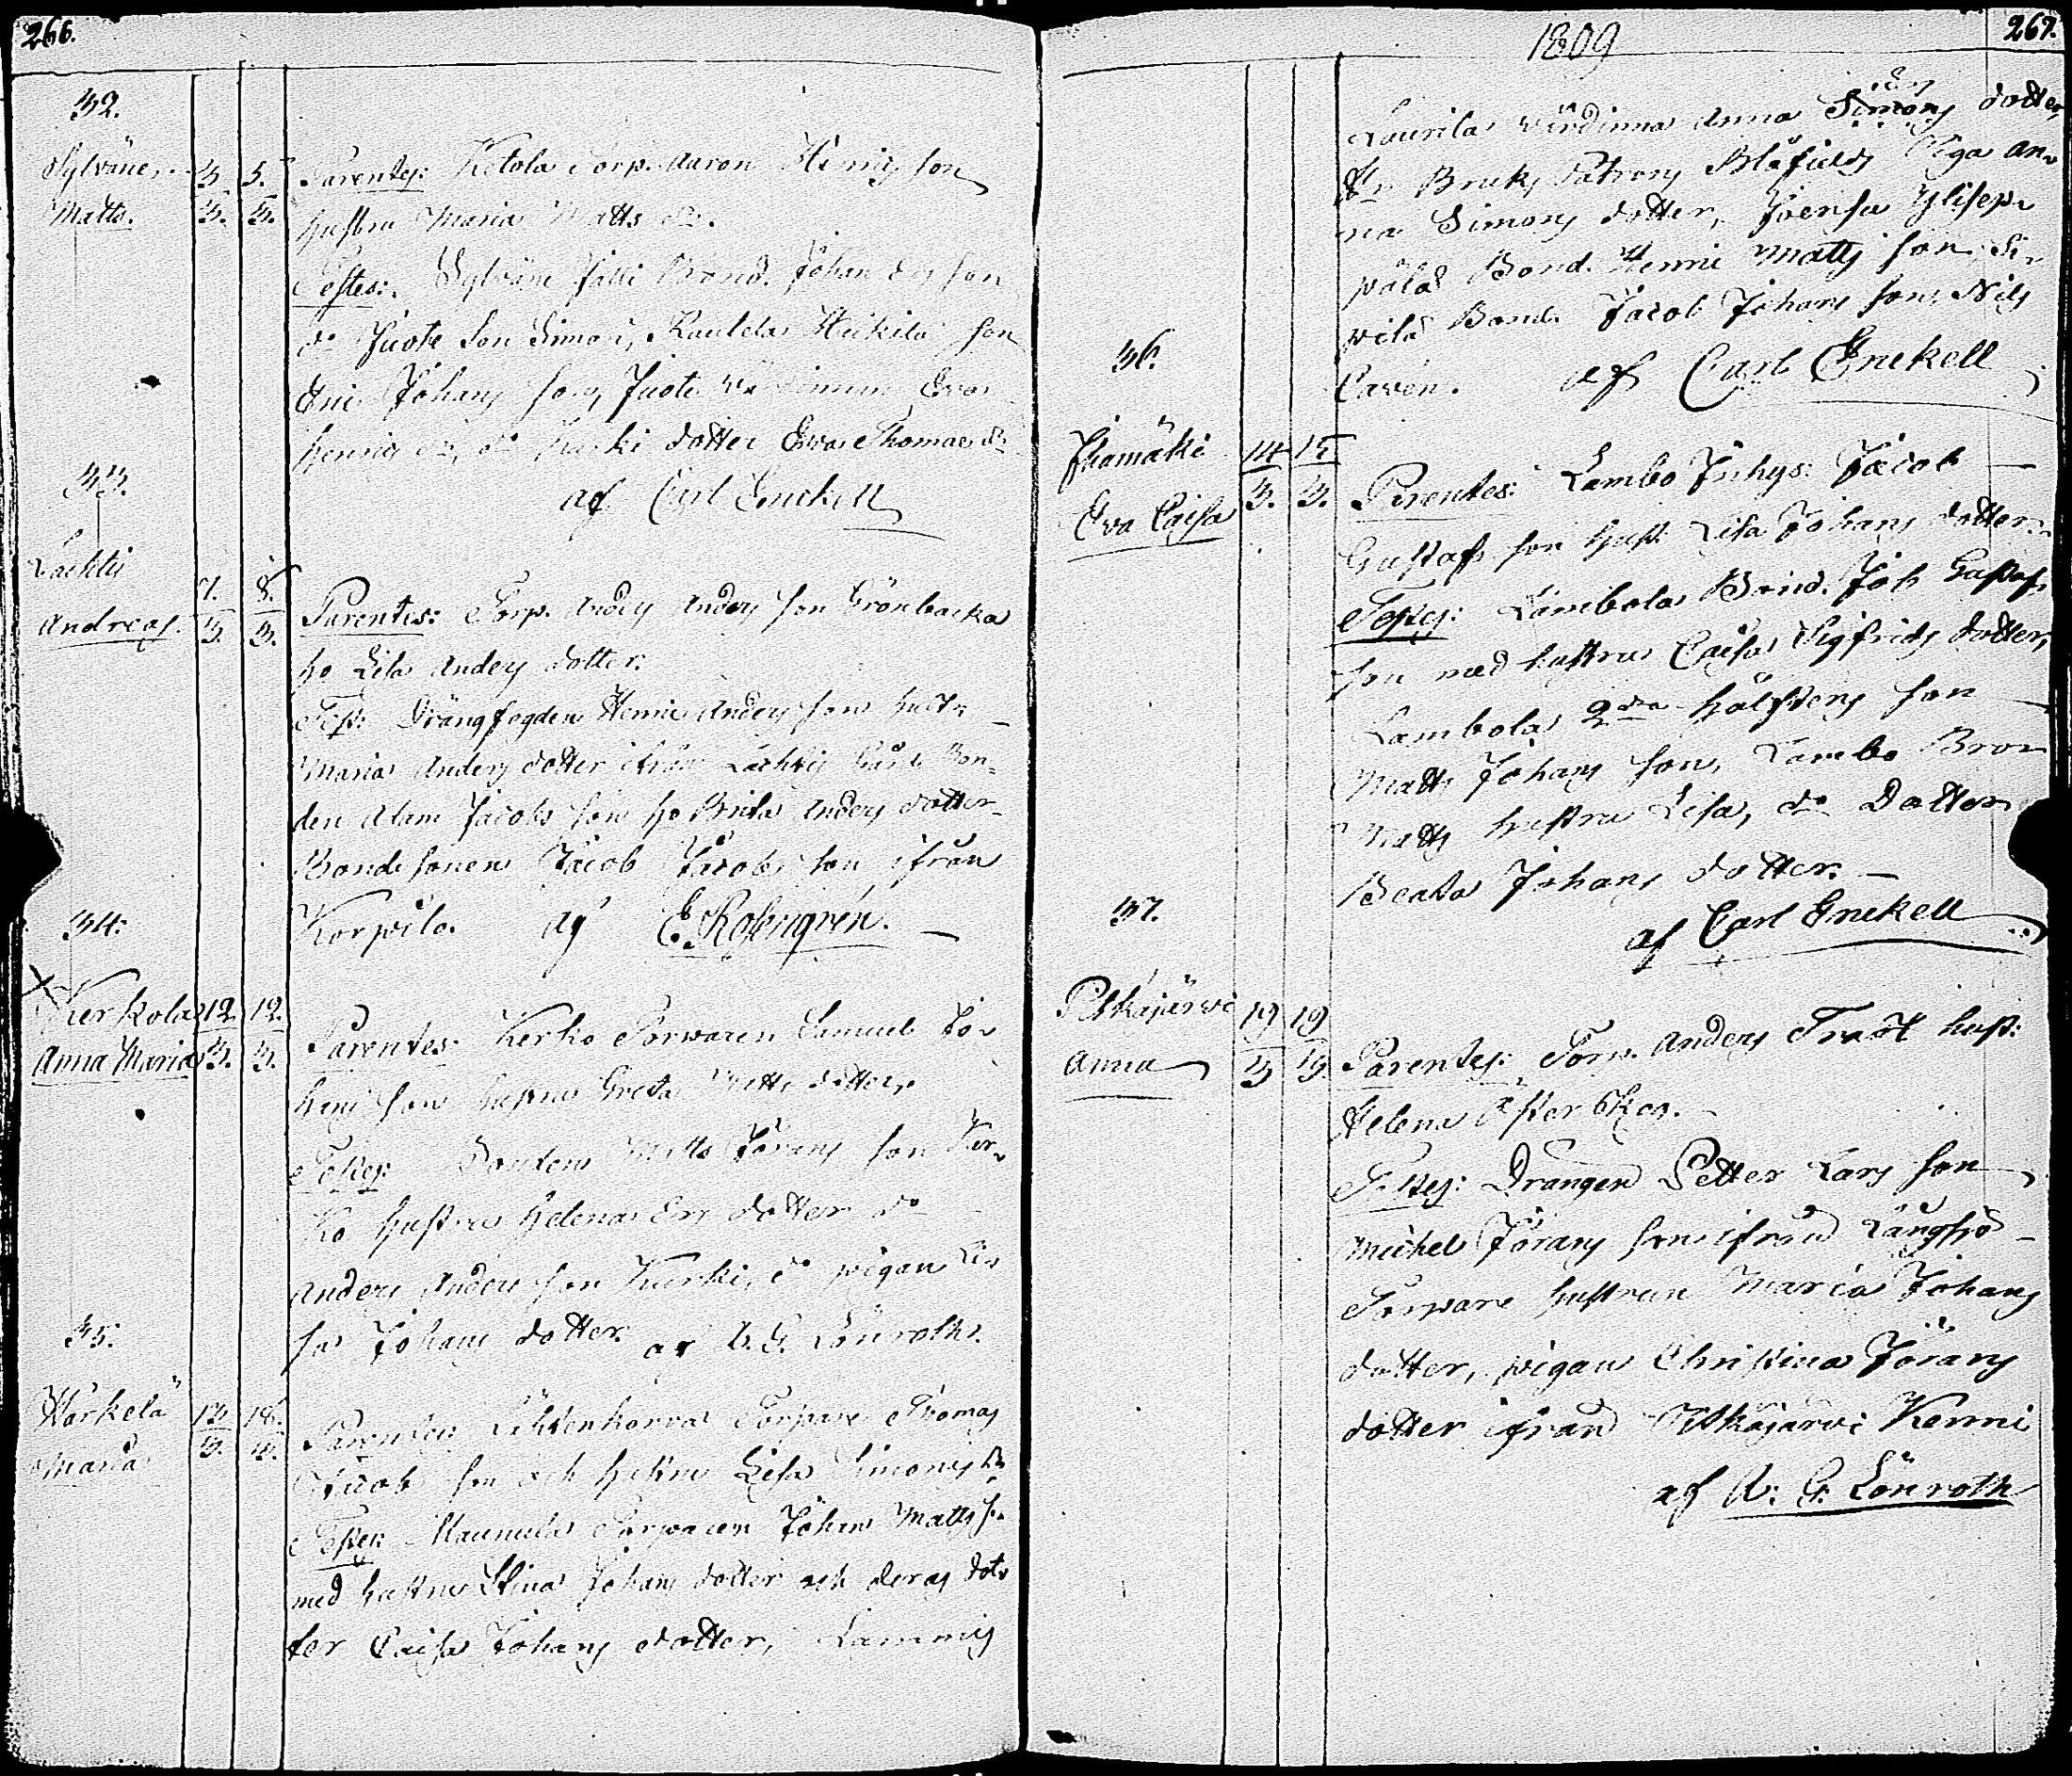 266.
32.
Sylväne,
Matts.
3/3. 5./3.
Parentes: Ketola Torp. Aaron Henrics son
hustru Maria Matts dr.
Testes: Sylväne Bond. Johan Ers son
do Juote Son Simon, Rautela Heikilä son
Eric Johans son, Juote Eva
Henrics dr, do Kurki dotter Eva Thomae dr
af Carl Enckell
33.
Lachtis
Andreas.
7./3. 8./3.
Parentes: Torp. Anders Anders son Grönbacka
ho Lisa Anders dotter.
Test: Drängfogden Henric Anders son hust:
Maria Anders dotter ifrån Lachtis Gård Bon-
den Adam Jacobs son ho Brita Anders dotter
Bonde sonen Jacob Jacobs son ifrån
Korpila. af E. Rosengrén.
34.
Kerkola
Anna Maria
12./3. 12./3.
Parentes: Kerko Torparen Samuel Jo-
hans son hustru Greta Matts dotter.
Testes: Bonden Matts Jörans son Ker-
ko hustru Helena Ers dotter do
Anders Anders son Kurki, do pigan Li-
sa Johans dotter. af A. G. Lönroth.
35.
Härkelä
Maria
Parentes Torpare Thomas
Jacobs son och hustru Lisa Simons dr
Testes: Maunula Torparen Johan Matts s.
med hustru Stina Johans dotter och deras dot-
ter Caisa Johans dotter, Lammis
1809
267.
Laurila wärdinna Anna Simons dotter,
Hr Bruks Patrons Blåfields Piga An-
na Simons dotter, Joensu Ylisep-
pälä Bond. Henric Matts son, Si-
pilä Bond. Jacob Johans son, Nils
Cavén. af Carl Enckell
36.
Ihamäki
Eva Caisa
14/3. 15/3.
Parentes: Lambo Inhys: Jacob
Gustafs son hust: Lisa Johans dotter.
Testes: Lambola Bond. Joh Gustafs
son med hustru Caisa Sigfrids dotter,
Lambola 2dra hälftens son
Matts Johans son, Lambo Bror
Matts hustru Lisa, do Dotter
Beata Johans dotter.
af Carl Enckell
37.
Pitkäjärwi
Anna
19/3 19/3.
Parentes: Torp. Anders Trast hust:
Helena Österskog.
Testes: Drängen Petter Lars son
Michel Jörans son ifrån Långsjö
Torpare hustrun Maria Johans
dotter, pigan Christina Jörans
dotter ifrån Pitkäjärwi Kenni
af A. G. Lönroth